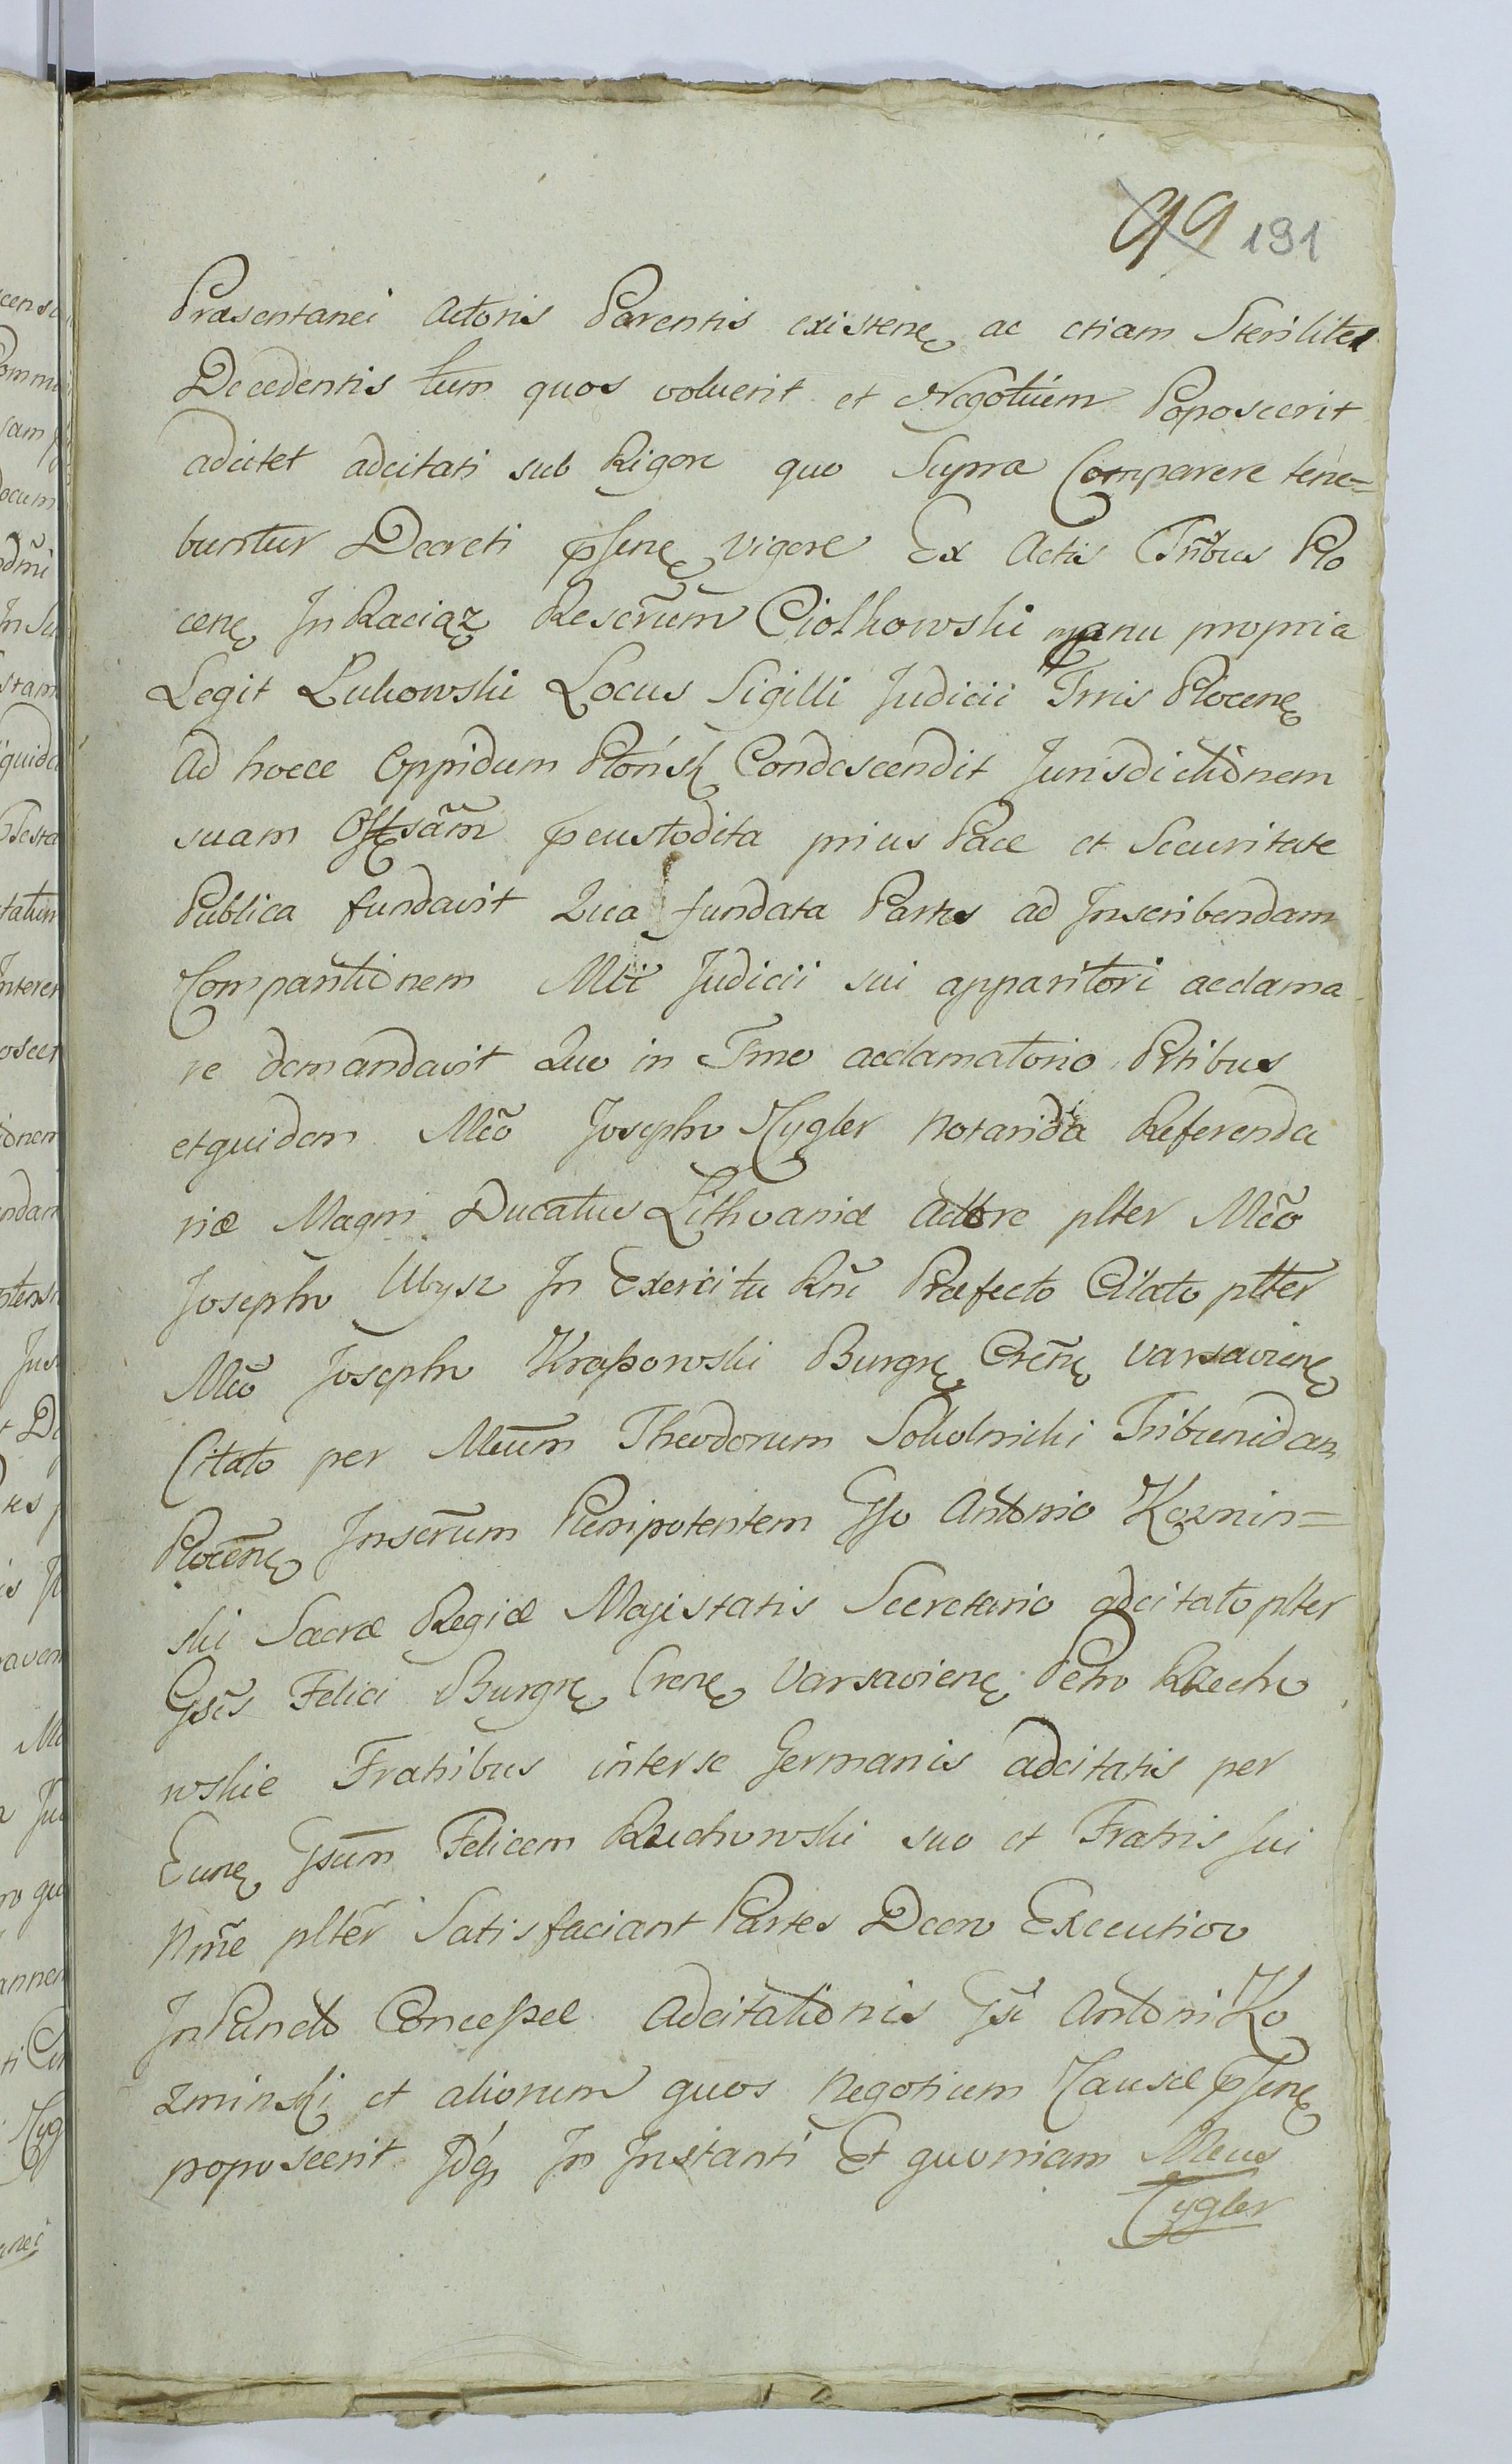 99 191
Præsentanei Actoris Parentis existenę ac etiam Steriliter
Decedentis tum quos voluerit et Negotium Poposcerit
adcitet adcitati sub Rigore quo Supra Comparere tene=
buntur Decreti pſenę vigore Ex Actis Tribus Plo
cenę In Raciąz Rescr̃um Ciołkowski manu propria
Legit Łukowski Locus Sigilli Judicii Trris Plocenę
Ad hocce Oppidum Płońsk Condescendit Jurisdictionem
suam pcustodita prius Pace et Securitate
Publica fundavit Qua fundata Partes ad Inscribendam
Comparitionem Mti Judicii sui apparitori acclama
re demandavit Quo in Tmo acclamatorio Ptibus
etquidem Mco Josepho Cygler Notario Referenda
riæ Magni Ducatus Lithvaniæ Actore plter Mco
Josepho Wysz In Exercitu Rni Præfecto Citato plter
Mco Josepho Kraszowski Burgrę Crenę Varsavienę
Citato per Mcum Theodorum Sokolnicki Tribunidam
Plocenę Inscrum Plenipotentem Gso Antonio Kozmin=
ski Sacræ Regiæ Majestatis Secretario adcitato plter
Gsis Felici Burgrę Crenę Varsavienę Petro Rzecho
wskie Fratribus interse Germanis adcitatis per
Eunę Gsum Felicem Rzechowski suo et Fratris sui
Nme plter Satisfaciant Partes Dcero Executivo
In Puncto Concessæ Adcitationis Gsi Antoni Ko
zminski et aliorum quos Negotium Causæ pſenę
poposcerit Idq In Instanti Et quoniam Mcus
Cygler